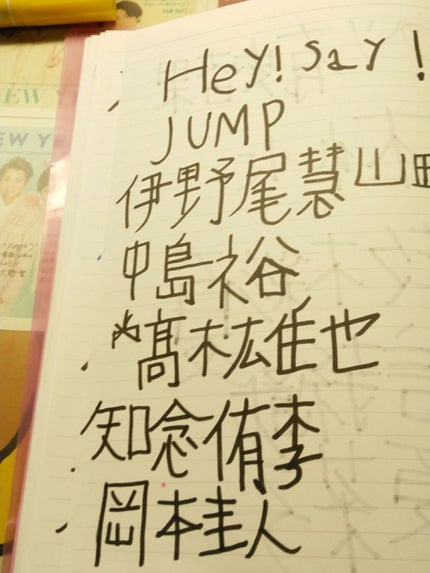 Hey! Say!
JUMP
伊野尾慧 山田
中島裕
髙木広雄也
知念侑李
岡本圭人
NEW YE
EW YE